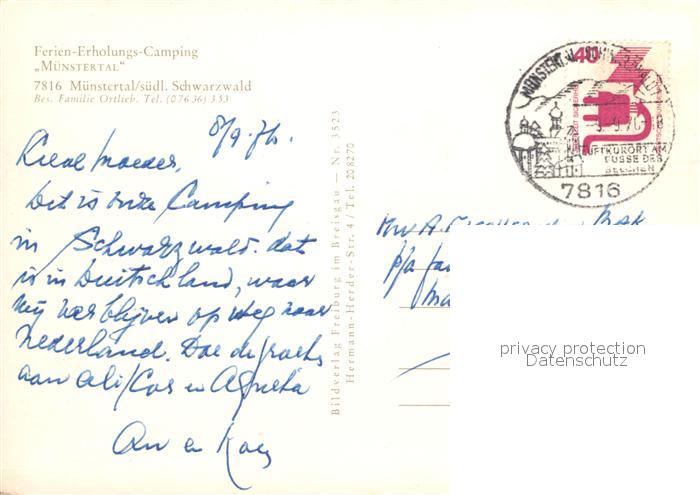 Ferien-Erholungs-Camping
„MÜNSTERTAL"
7816 Münstertal/südl. Schwarzwald
Bes. Familie Ortlieb. Tel. (07636) 353
8/9.76.
Lieve Moeder,
Dit is onze Camping
in Schwarzwald. dat
is in Duitschland, waar
wij verblijven op weg naar
Nederland. Doe de groeten
aan Ali/Cor en Agneta
An en Koos
Bildverlag Freiburg im Breisgau — Nr. 3523
Hermann-Herder-Str. 4 / Tel. 206270
40
LUFTKURORT AM
FUSSE DES
BELCHEN
7816
p/a
privacy protection
Datenschutz